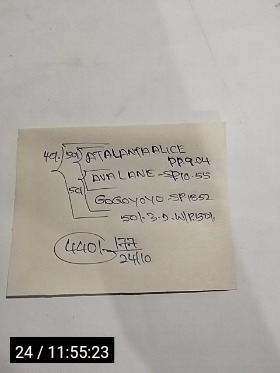 49. 59) ATALANTA ALICE
PP.9.04
AVALANE - SP10.55
59
GOGOYOYO - SP1852
50/- 3-D. W/P150/-
440/- 177
24/10
24 / 11:55:23